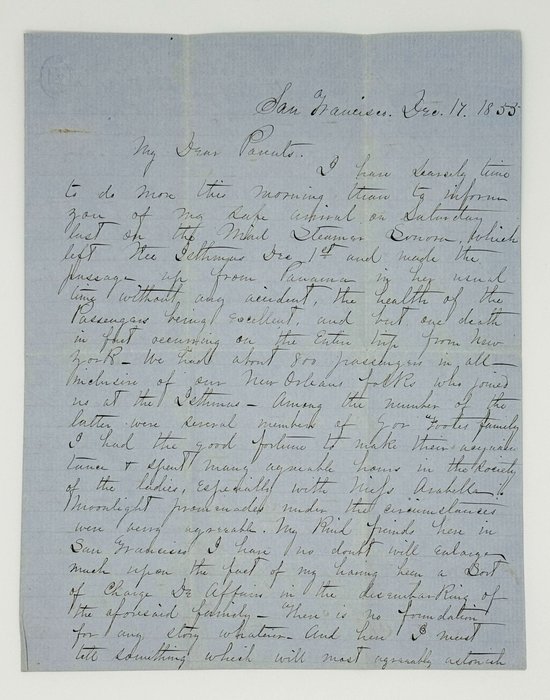 San Francisco. Dec. 17. 1855
My Dear Parents.
I have scarsely time
to do more this morning than to inform
you of my safe arrival on Saturday
last on the Mail Steamer Sonora, which
left the Isthmus Dec 1st and made the
passage up from Panama in her usual
time without any accident, the health of the
Passengers being excellent, and but one death
in fact occurring on the Entire trip from New
York - We had about 800 passengers in all -
Inclusive of our New Orleans folks who joined
us at the Isthmus - Among the number of the
latter were several members of Gov Footes family
I had the good fortune to make their acquain
tance & spent many agreeable hours in the society
of the ladies, Especially with Miss Arabella.
Moonlight promenades under the circumstances
were very agreeable. My Kind friends here in
San Francisco I have no doubt will enlarge
much upon the fact of my having been a Sort
of Charge De Affairs in the disembarking of
the aforesaid family - There is no foundation
for any story whatever - And here I must
tell something which will most agreeably astonish